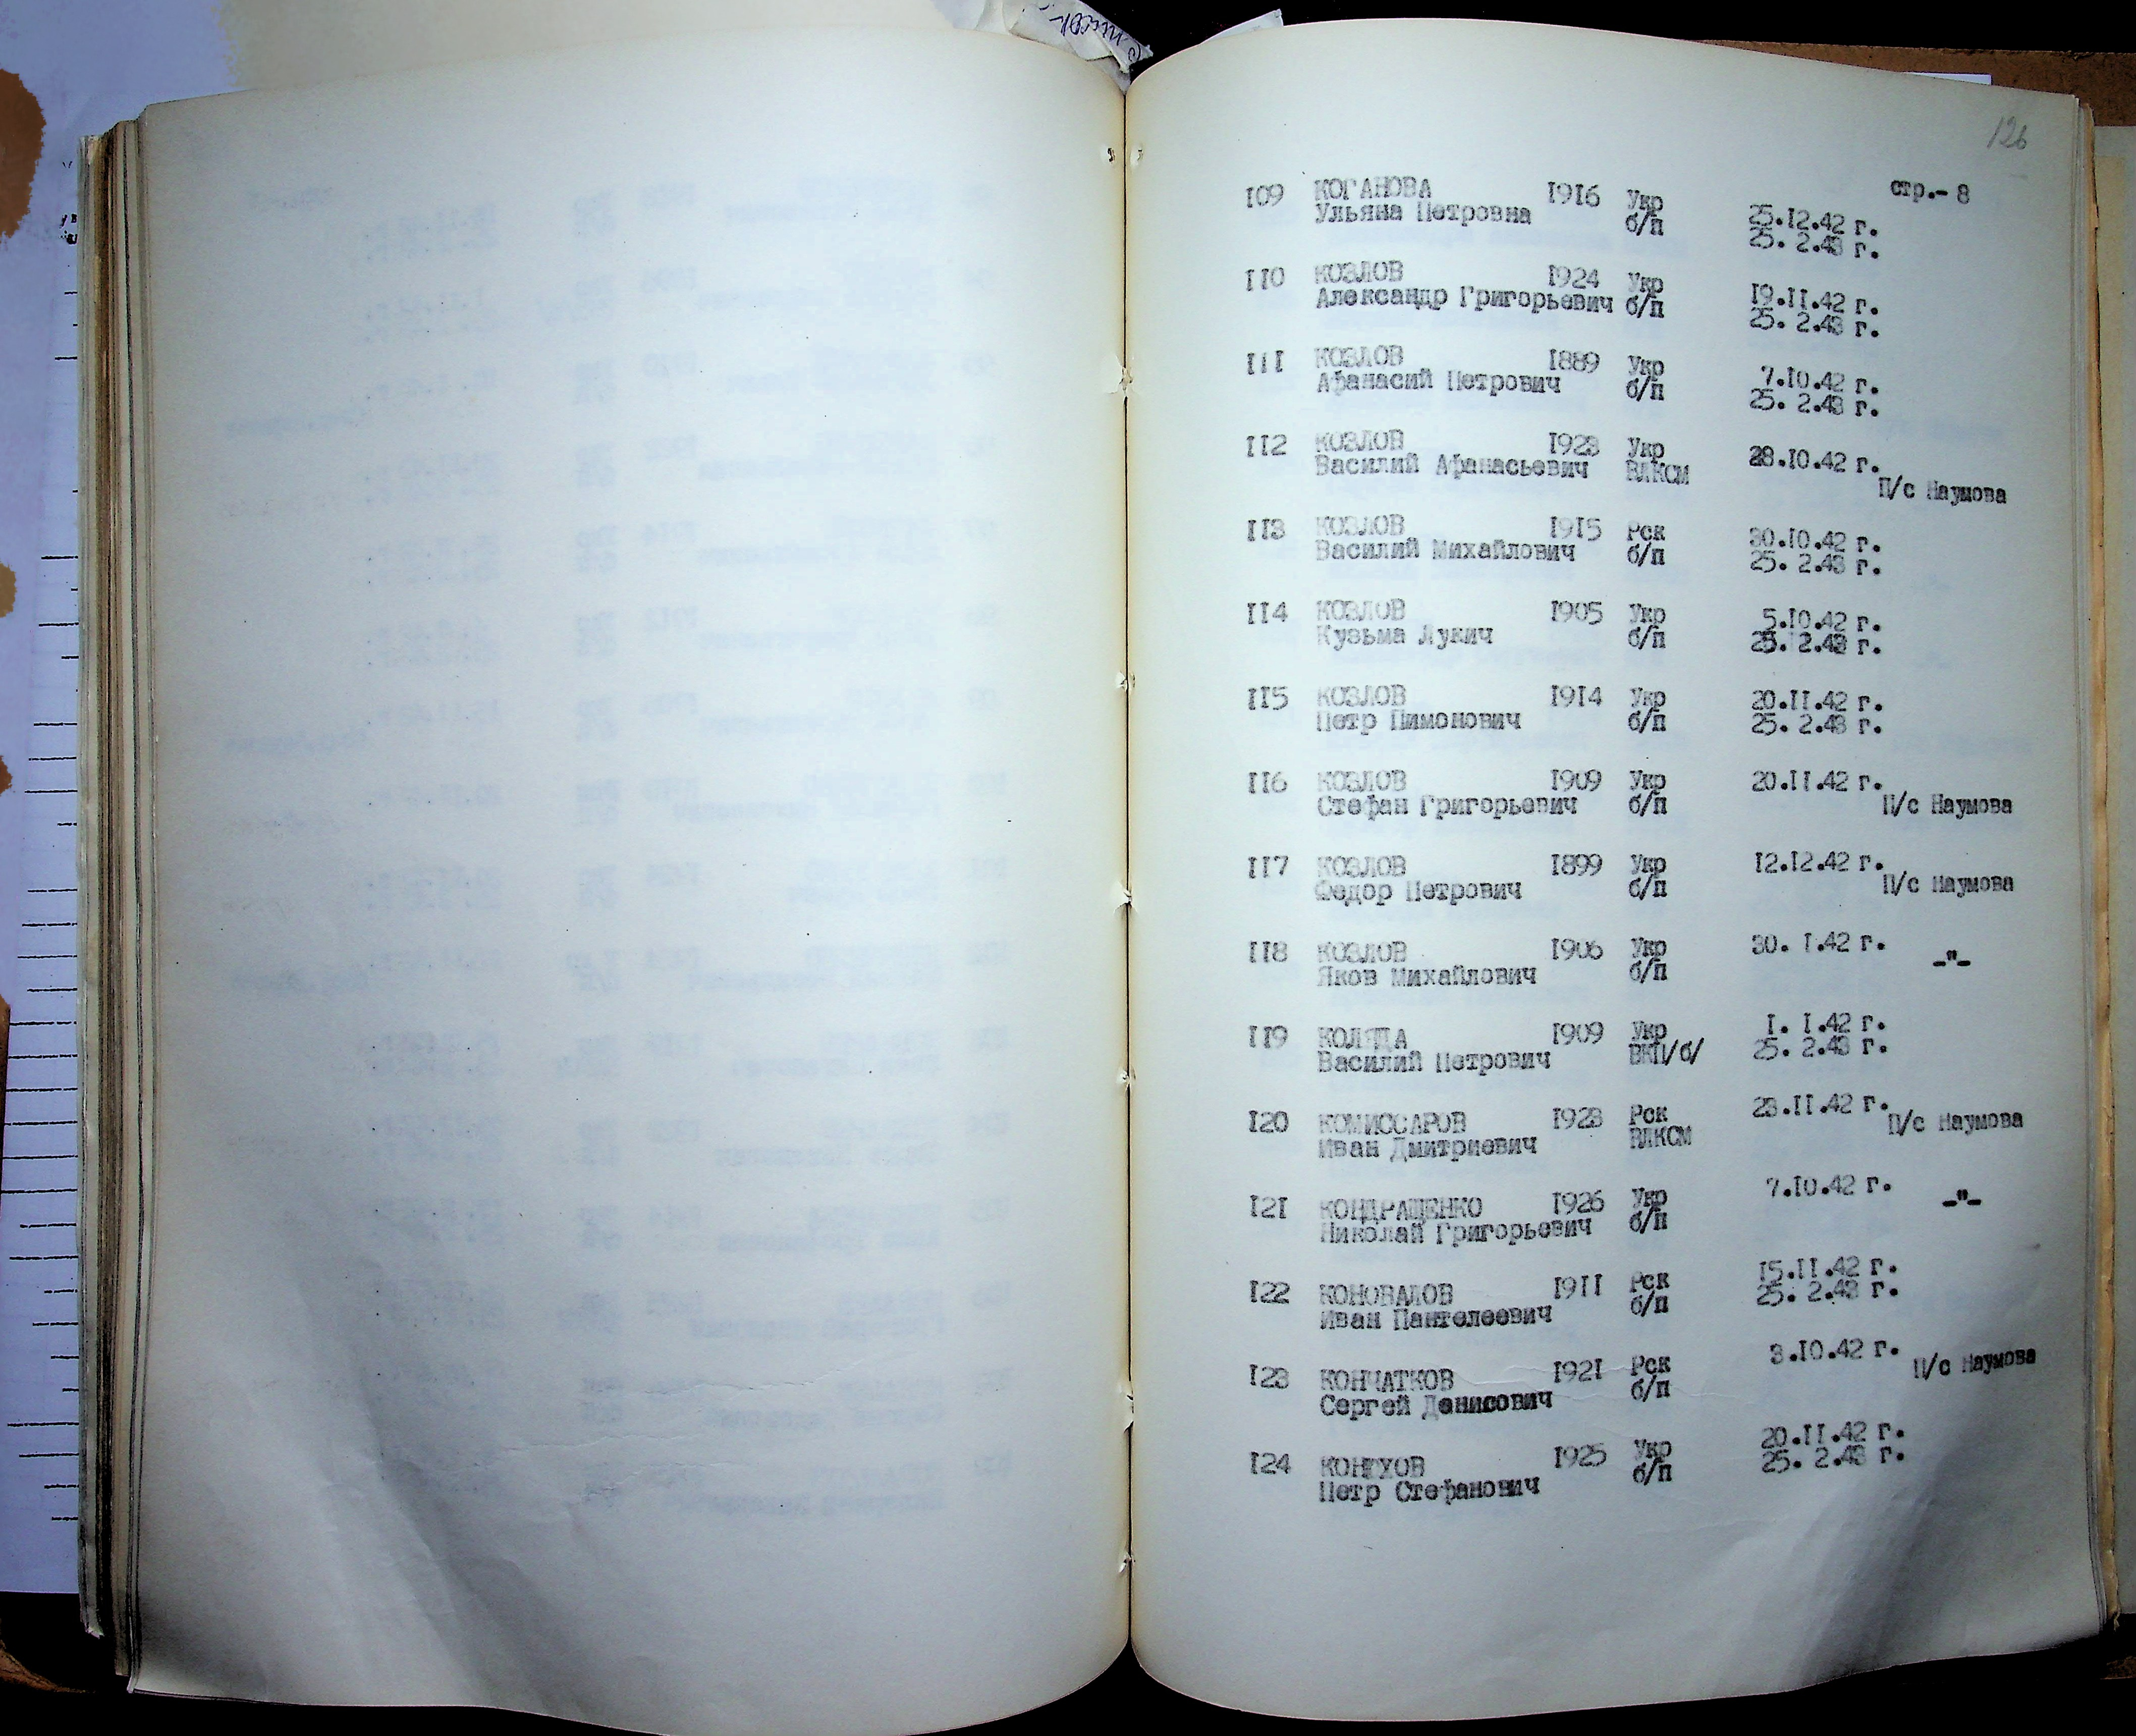 126
стр.- 8
109 КОГАНОВА 1916 Укр
Ульяна Петровна б/п 25.12.42 г.
25. 2.43 г.
110 КОЗЛОВ 1924 Укр
Александр Григорьевич б/п 19.11.42 г.
25. 2.43 г.
111 КОЗЛОВ 1889 Укр
Афанасий Петрович б/п 7.10.42 г.
25. 2.43 г.
112 КОЗЛОВ 1923 Укр 28.10.42 г.
Василий Афанасьевич ВЛКСМ П/с Наумова
113 КОЗЛОВ 1915 Рск 30.10.42 г.
Василий Михайлович б/п 25. 2.43 г.
114 КОЗЛОВ 1905 Укр 5.10.42 г.
Кузьма Лукич б/п 25. 2.43 г.
115 КОЗЛОВ 1914 Укр 20.11.42 г.
Петр Пимонович б/п 25. 2.43 г.
116 КОЗЛОВ 1909 Укр 20.11.42 г.
Стефан Григорьевич б/п П/с Наумова
117 КОЗЛОВ 1899 Укр 12.12.42 г.
Федор Петрович б/п П/с Наумова
118 КОЗЛОВ 1906 Укр 30. 1.42 г.
Яков Михайлович б/п -"-
119 КОЛЯДА 1909 Укр 1. 1.42 г.
Василий Петрович ВКП/б/ 25. 2.43 г.
120 КОМИССАРОВ 1923 Рск 23.11.42 г.
Иван Дмитриевич ВЛКСМ П/с Наумова
121 КОНДРАЩЕНКО 1926 Укр 7.10.42 г.
Николай Григорьевич б/п -"-
122 КОНОВАЛОВ 1911 Рск 15.11.42 г.
Иван Пантелеевич б/п 25. 2.43 г.
123 КОНЧАТКОВ 1921 Рск 3.10.42 г.
Сергей Денисович б/п П/с Наумова
124 1925 Укр 20.11.42 г.
Петр Стефанович б/п 25. 2.43 г.